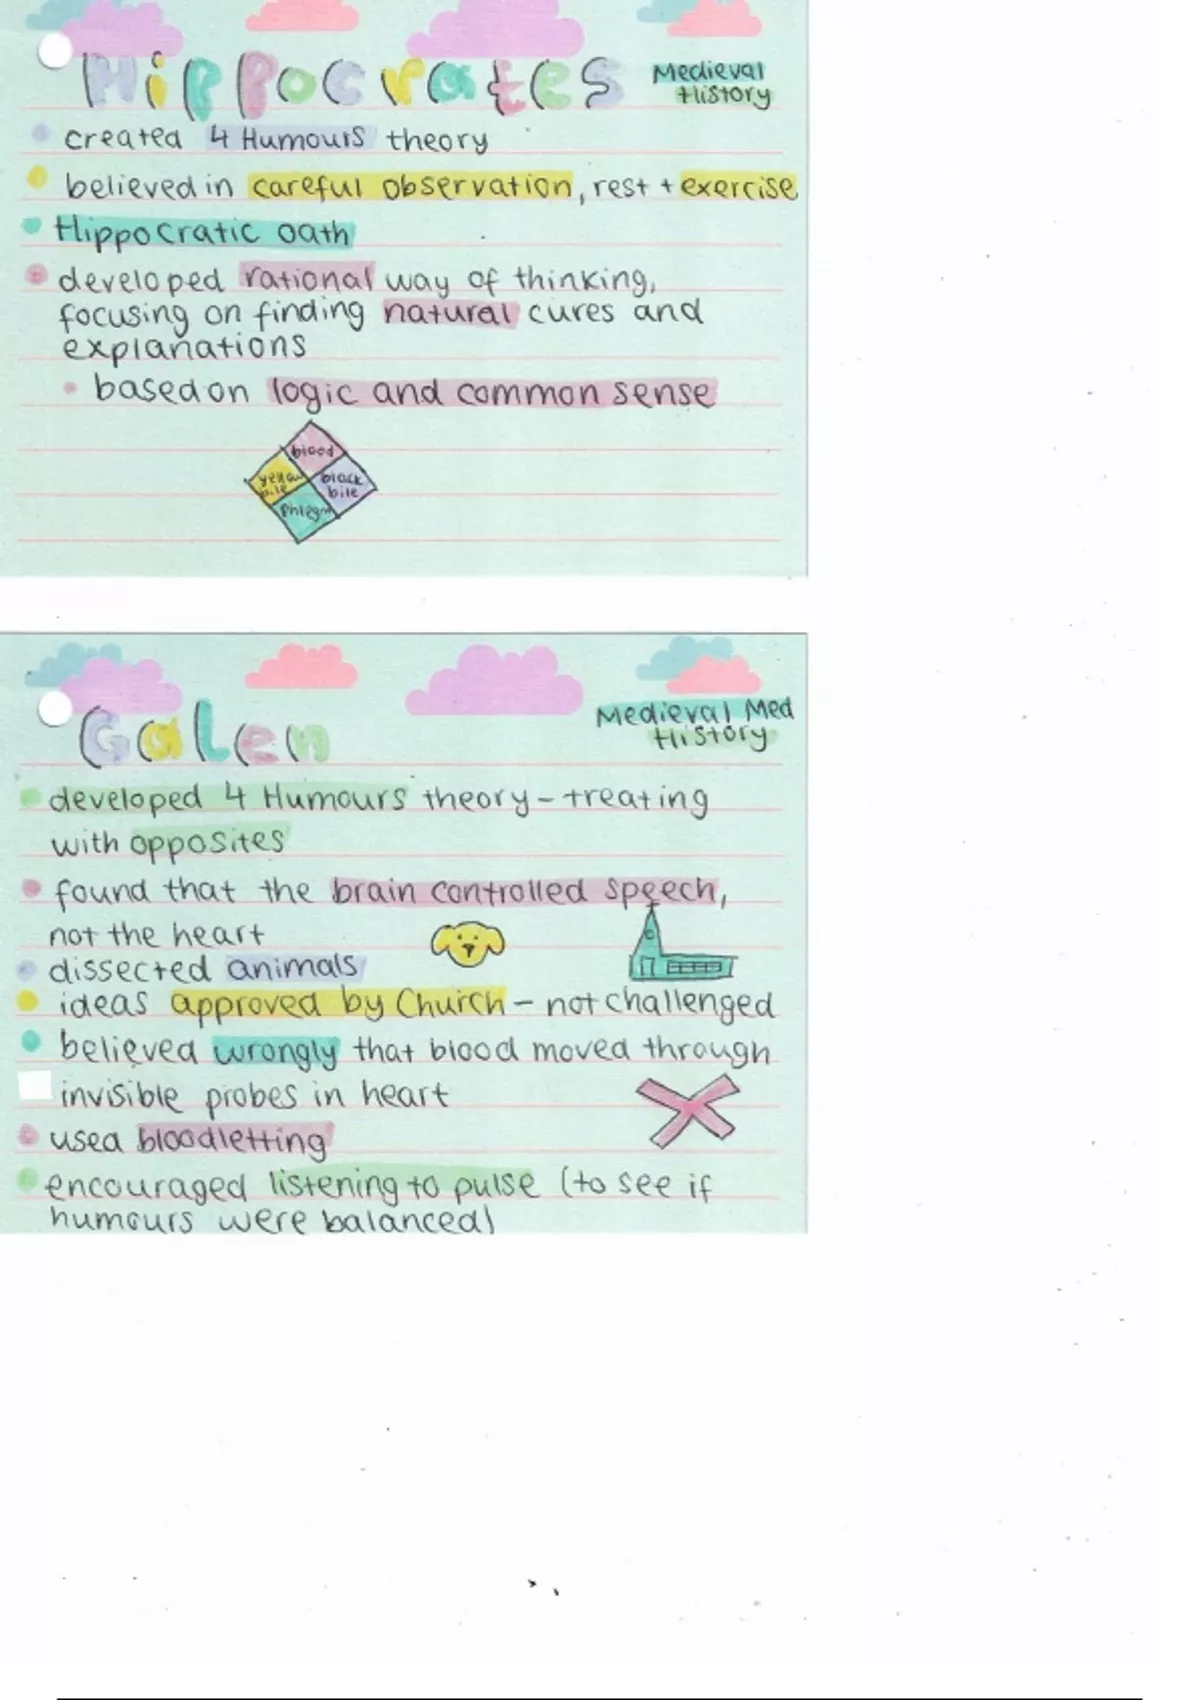 Hippocrates
Medieval
History
created 4 Humours theory
believed in careful observation, rest + exercise
Hippocratic oath
developed rational way of thinking,
focusing on finding natural cures and
explanations
based on logic and common sense
blood
yellow
bile
black
bile
Phlegm
Galen
Medieval Med
History
developed 4 Humours theory - treating
with opposites
found that the brain controlled speech,
not the heart
dissected animals
ideas approved by Church - not challenged
believed wrongly that blood moved through
invisible probes in heart
used bloodletting
encouraged listening to pulse (to see if
humours were balanced)